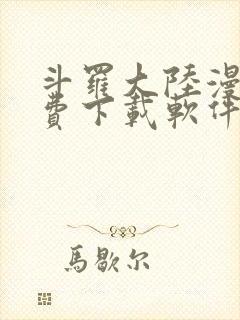 斗羅大陸漫
費下載軟件
馬歇尔